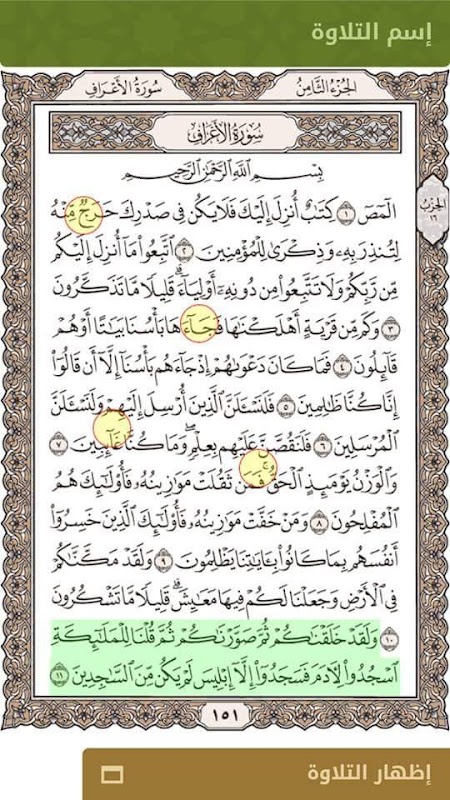 إسم التلاوة
الجزء الثامن
سورة الأعراف
سورة الأعراف
بسم الله الرحمن الرحيم
الٓمٓصٓ ١ كِتَٰبٌ أُنزِلَ إِلَيْكَ فَلَا يَكُن فِي صَدْرِكَ حَرَجٌ مِّنْهُ
لِتُنذِرَ بِهِۦ وَذِكْرَىٰ لِلْمُؤْمِنِينَ ٢ ٱتَّبِعُوا۟ مَآ أُنزِلَ إِلَيْكُم
مِّن رَّبِّكُمْ وَلَا تَتَّبِعُوا۟ مِن دُونِهِۦٓ أَوْلِيَآءَ ۗ قَلِيلًا مَّا تَذَكَّرُونَ
٣ وَكَم مِّن قَرْيَةٍ أَهْلَكْنَٰهَا فَجَآءَهَا بَأْسُنَا بَيَٰتًا أَوْ هُمْ
قَآئِلُونَ ٤ فَمَا كَانَ دَعْوَىٰهُمْ إِذْ جَآءَهُم بَأْسُنَآ إِلَّآ أَن قَالُوٓا۟
إِنَّا كُنَّا ظَٰلِمِينَ ٥ فَلَنَسْـَٔلَنَّ ٱلَّذِينَ أُرْسِلَ إِلَيْهِمْ وَلَنَسْـَٔلَنَّ
ٱلْمُرْسَلِينَ ٦ فَلَنَقُصَّنَّ عَلَيْهِم بِعِلْمٍ ۖ وَمَا كُنَّا غَآئِبِينَ ٧
وَٱلْوَزْنُ يَوْمَئِذٍ ٱلْحَقُّ ۚ فَمَن ثَقُلَتْ مَوَٰزِينُهُۥ فَأُو۟لَٰٓئِكَ هُمُ
ٱلْمُفْلِحُونَ ٨ وَمَنْ خَفَّتْ مَوَٰزِينُهُۥ فَأُو۟لَٰٓئِكَ ٱلَّذِينَ خَسِرُوٓا۟
أَنفُسَهُم بِمَا كَانُوا۟ بِـَٔايَٰتِنَا يَظْلِمُونَ ٩ وَلَقَدْ مَكَّنَّٰكُمْ
فِي ٱلْأَرْضِ وَجَعَلْنَا لَكُمْ فِيهَا مَعَٰيِشَ ۗ قَلِيلًا مَّا تَشْكُرُونَ
١٠ وَلَقَدْ خَلَقْنَٰكُمْ ثُمَّ صَوَّرْنَٰكُمْ ثُمَّ قُلْنَا لِلْمَلَٰٓئِكَةِ
ٱسْجُدُوا۟ لِءَادَمَ فَسَجَدُوٓا۟ إِلَّآ إِبْلِيسَ لَمْ يَكُن مِّنَ ٱلسَّٰجِدِينَ ١١
الحزب
١٦
١٥١
إظهار التلاوة